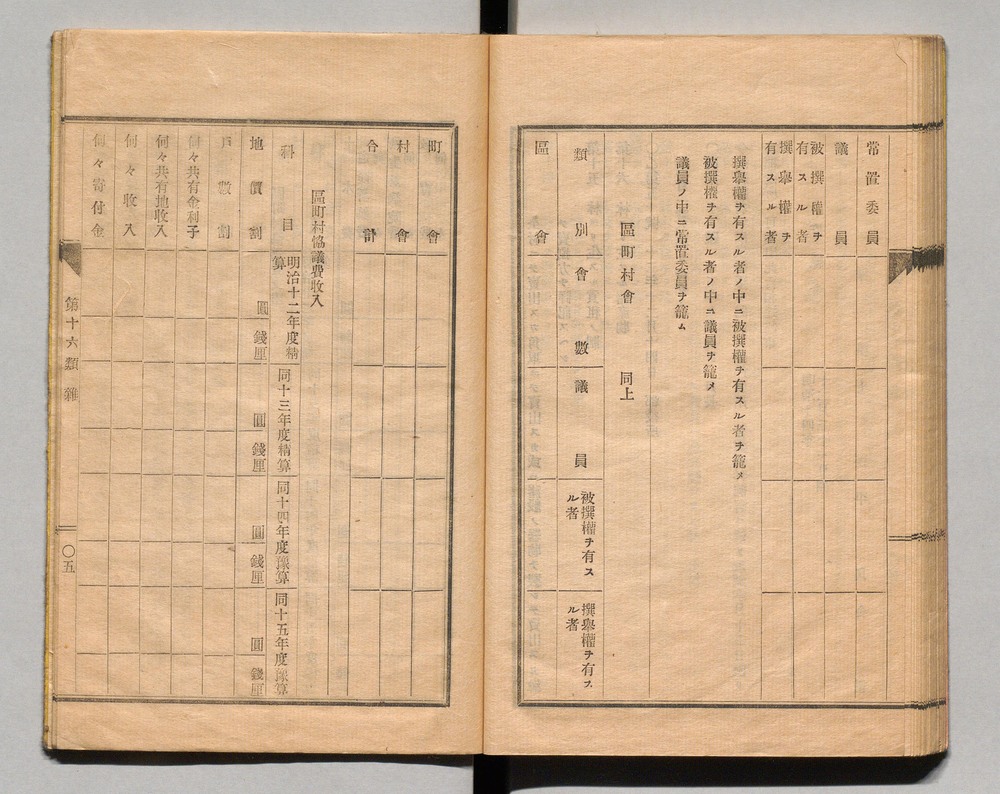 常置委員
議員
被撰權ヲ有スル者
撰擧權ヲ有スル者
撰擧權ヲ有スル者ノ中ニ被撰權ヲ有スル者ヲ籠メ
被撰權ヲ有スル者ノ中ニ議員ヲ籠メ
議員ノ中ニ常置委員ヲ籠ム
區町村會 同上
類別 會數 議員 被撰權ヲ有スル者 撰擧權ヲ有スル者
區會
町會
村會
合計
區町村協議費收入
科目 明治十二年度精算 同十三年度精算 同十四年度豫算 同十五年度豫算
地價割 圓 錢厘 圓 錢厘 圓 錢厘 圓 錢厘
戸數割
何々共有金利子
何々共有地收入
何々收入
何々寄付金
第十六類 雜 五〇